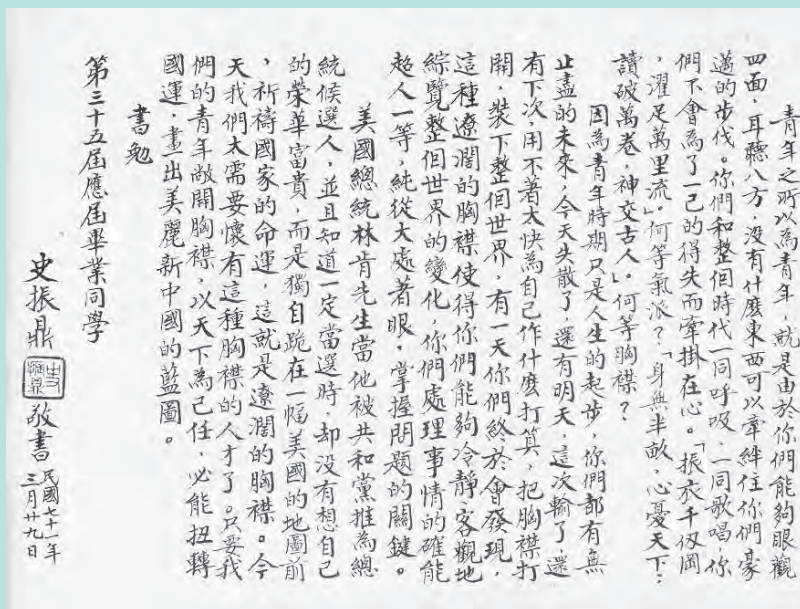 青年之所以為青年，就是由於你們能夠眼觀
四面，耳聽八方，没有什麼東西可以牽絆住你們豪
邁的步伐。你們和整個時代一同呼吸，一同歌唱，你
們不會為了一己的得失而牽掛在心。「振衣千仞岡
，濯足萬里流」。何等氣派？「身無半畝，心憂天下；
讀破萬卷，神交古人。」何等胸襟？
因為青年時期只是人生的起步，你們都有無
止盡的未來，今天失散了，還有明天，這次輸了，還
有下次，用不著太快為自己作什麼打算，把胸襟打
開，裝下整個世界，有一天你們終於會發現，
這種遼濶的胸襟使得你們能夠冷靜客觀地
綜覽整個世界的變化，你們處理事情的確能
超人一等，純從大處著眼，掌握問題的關鍵。
美國總統林肯先生當他被共和黨推為總
統候選人，並且知道一定當選時，却没有想自己
的榮華富貴，而是獨自跪在一幅美國的地圖前
，祈禱國家的命運，這就是遼濶的胸襟。今
天我們太需要懷有這種胸襟的人才了。只要我
們的青年敞開胸襟，以天下為己任，必能扭轉
國運，畫出美麗新中國的藍圖。
書勉
第三十五屆應屆畢業同學
史振鼎 敬書 民國七十一年
三月廿九日